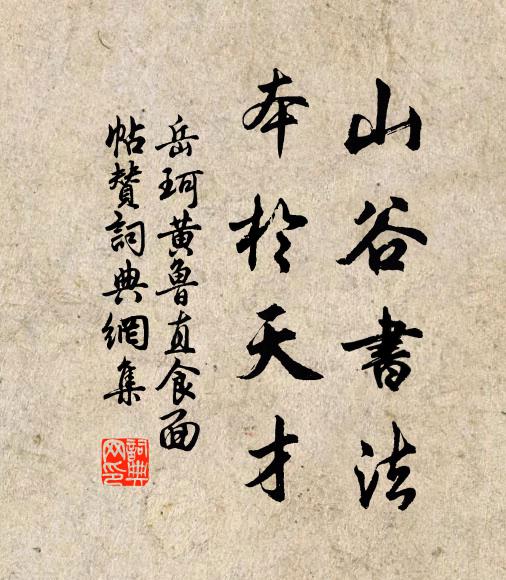 山谷書法
本於天才
岳珂黄魯直食面
帖贊詞典網集
詞典网印